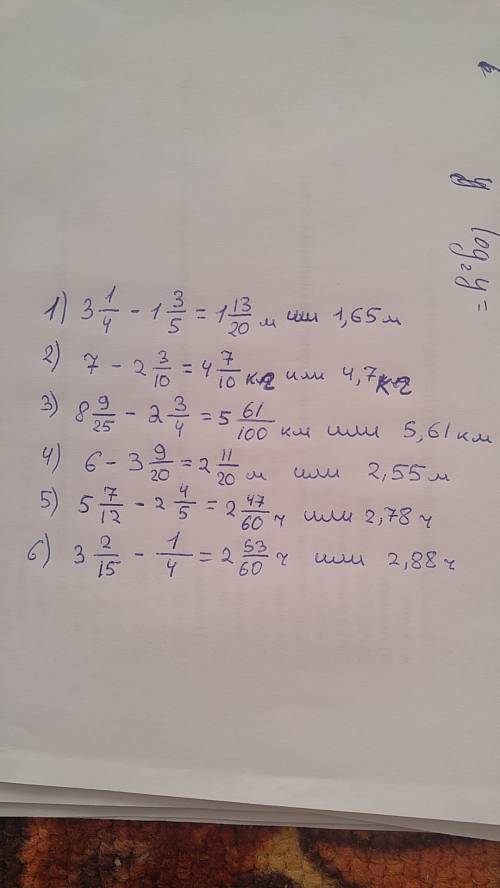 1) 3 1/4 - 1 3/5 = 1 13/20 м или 1,65 м
2) 7 - 2 3/10 = 4 7/10 кг или 4,7 кг
3) 8 9/25 - 2 3/4 = 5 61/100 км или 5,61 км
4) 6 - 3 9/20 = 2 11/20 м или 2,55 м
5) 5 7/12 - 2 4/5 = 2 47/60 ч или 2,78 ч
6) 3 2/15 - 1/4 = 2 53/60 ч или 2,88 ч
log₂y =